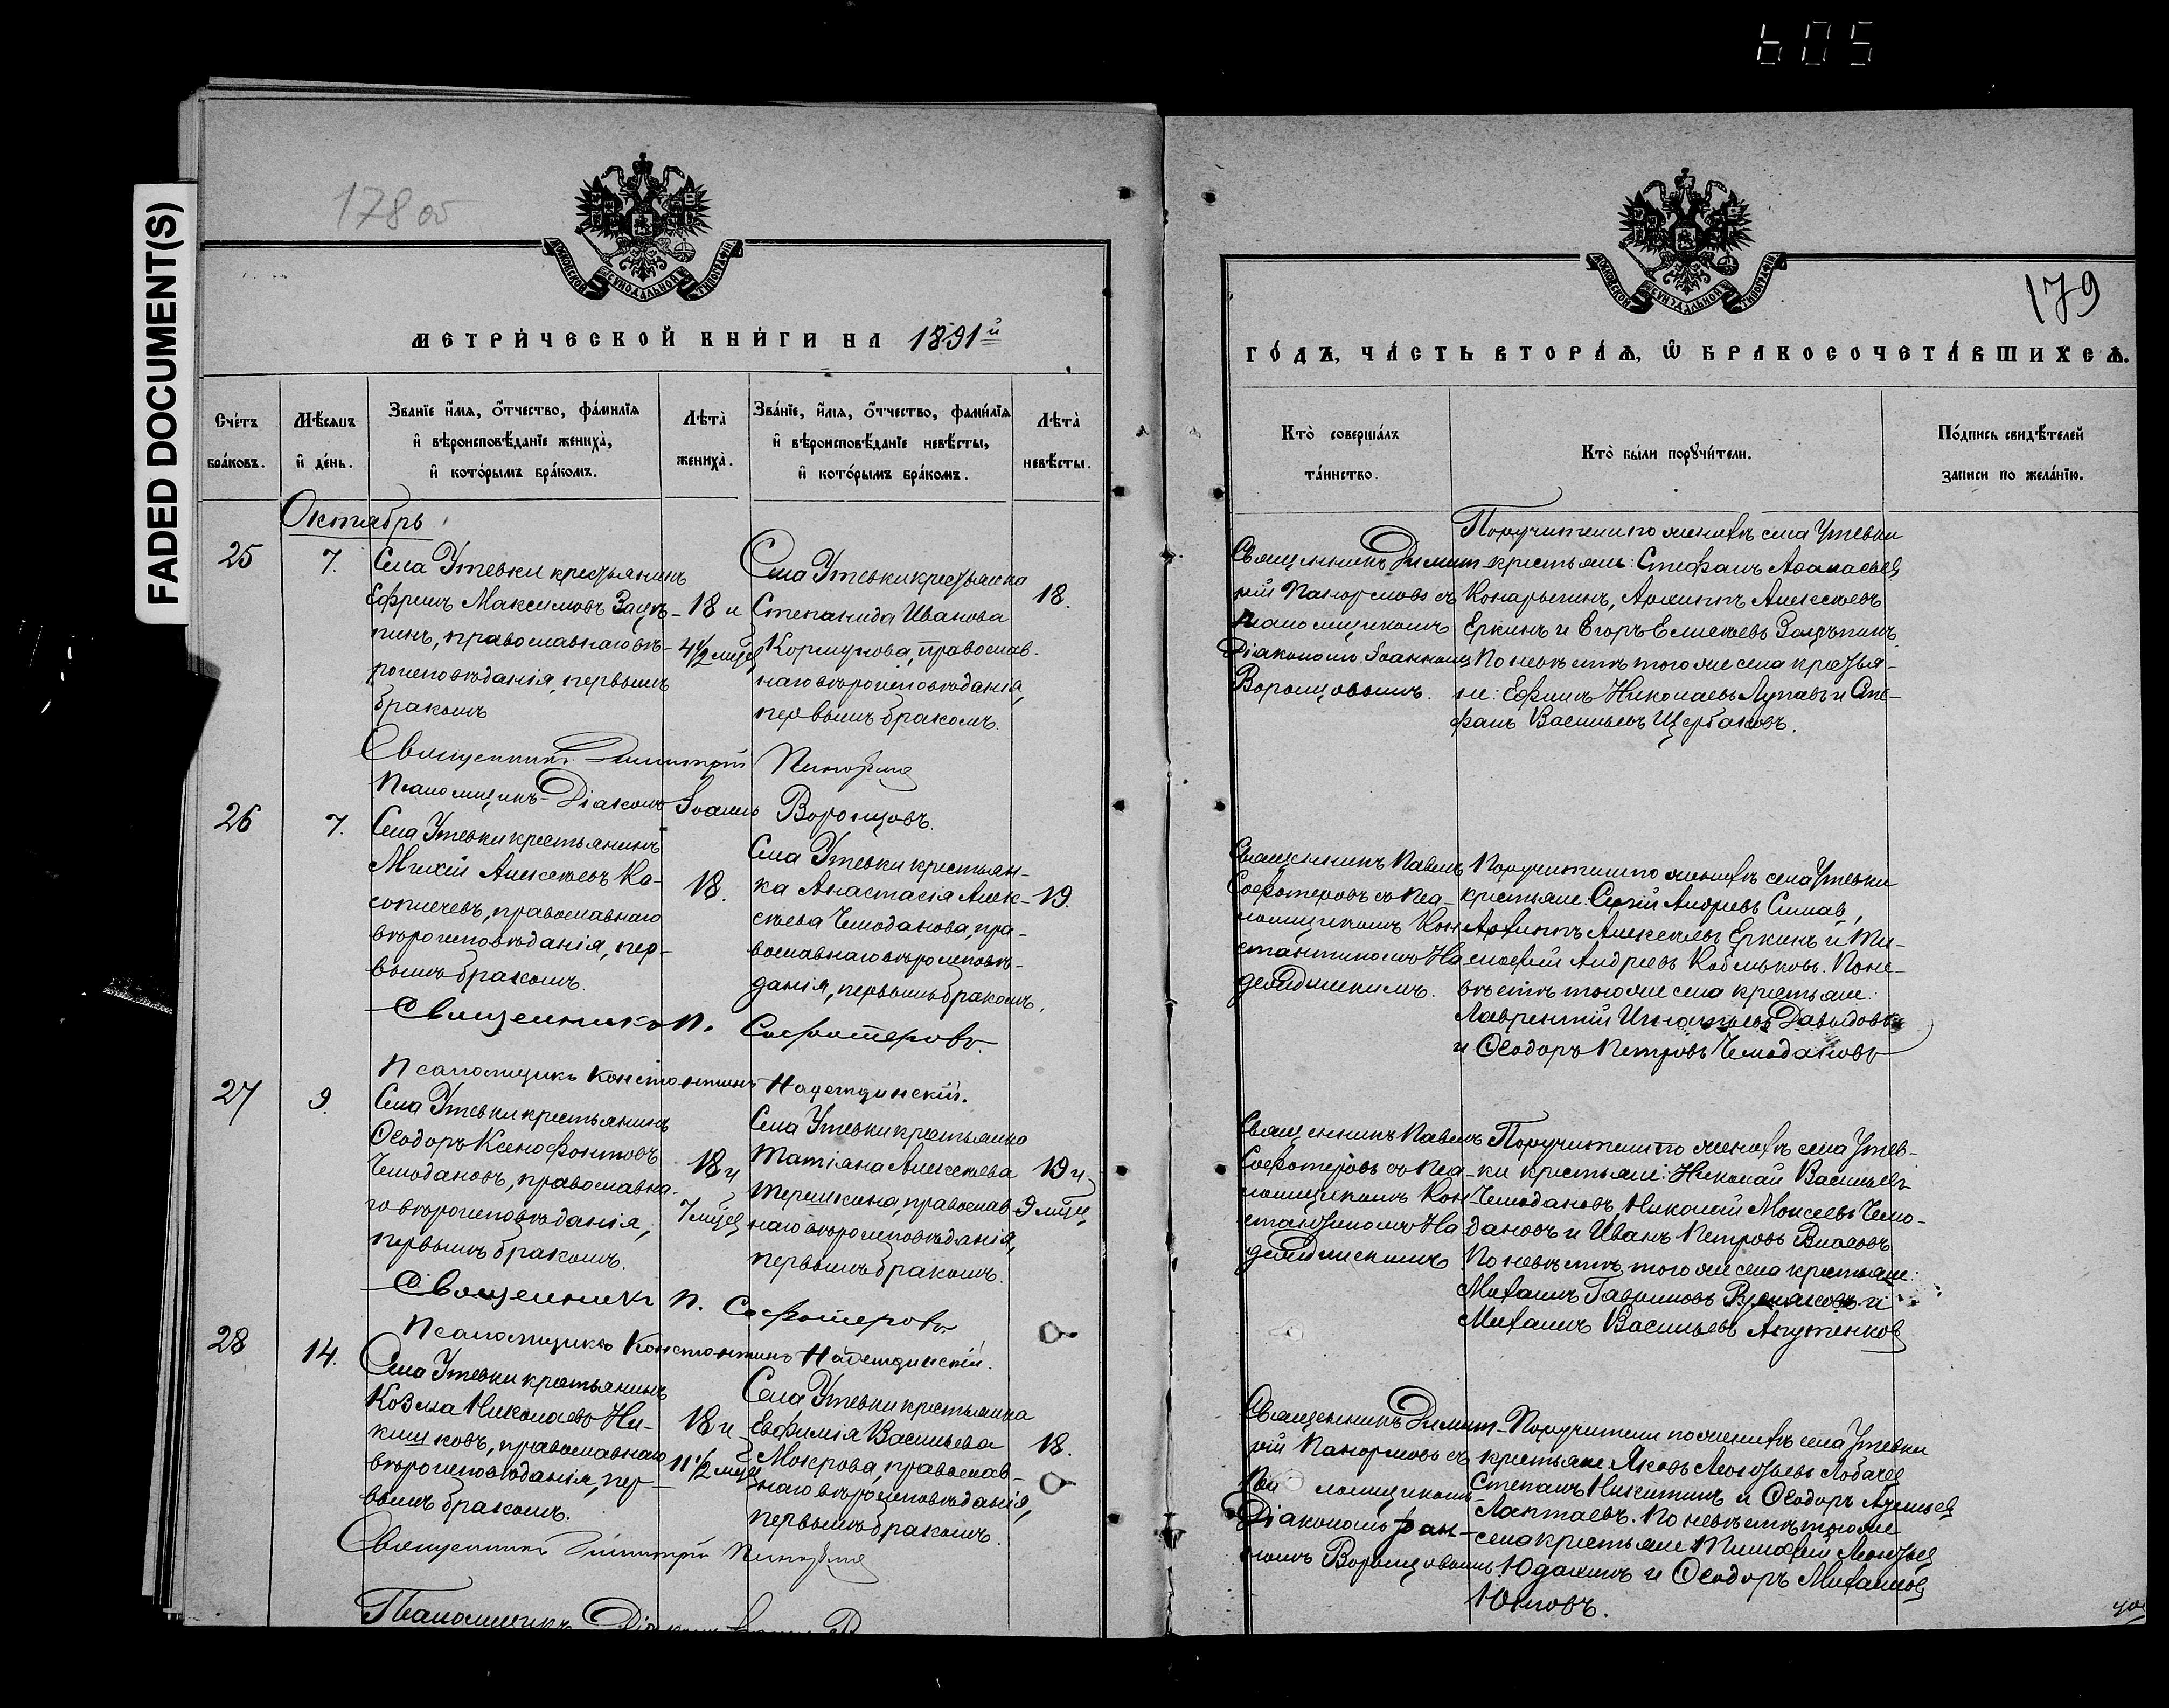 605
FADED DOCUMENT(S)
178 об
МОСКОВСКОЙ СѴНОДАЛЬНОЙ ТИПОГРАФІИ
МЕТРИ́ЧЕСКОЙ КНИ́ГИ НА 1891й
Сче́тъ бра́ковъ.
Мѣ́сяцъ и҆ де́нь.
Зва́нїе и҆́мя, ѻ҆́тчество, фами́лїя и҆ вѣроисповѣ́данїе жениха̀, и҆ кото́рымъ бра́комъ.
Лѣта̀ жениха̀.
Зва́нїе, и҆́мя, ѻ҆́тчество, фами́лїя и҆ вѣроисповѣ́данїе невѣ́сты, и҆ кото́рымъ бра́комъ.
Лѣта̀ невѣ́сты.
Октябрь
25
7.
Села Утевки крестьянинъ
Ефремъ Максимовъ Зацѣ-
пинъ, православнаго вѣ-
роисповѣданія, первымъ
бракомъ
18 и
4 1/2 мѣсц
Села Утевки крестьянка
Степанида Иванова
Коршунова, православ-
наго вѣроисповѣданія,
первымъ бракомъ.
18.
Священникъ Димитрій
Псаломщикъ-Діаконъ Іоаннъ Воронцовъ.
26
7.
Села Утевки крестьянинъ
Михей Алексѣевъ Ко-
соплечевъ, православнаго
вѣроисповѣданія, пер-
вымъ бракомъ.
18.
Села Утевки крестьян-
ка Анастасія Алек-
сѣева Чемоданова, пра-
вославнаго вѣроисповѣ-
данія, первымъ бракомъ.
19.
Священникъ П. Софотеровъ.
Псаломщикъ Константинъ Надеждинскій.
27
9.
Села Утевки крестьянинъ
Ѳеодоръ Ксенофонтовъ
Чемодановъ, православна-
го вѣроисповѣданія,
первымъ бракомъ.
18 и
7 мѣсц
Села Утевки крестьянка
Татіана Алексѣева
Терешкина, православ-
наго вѣроисповѣданія,
первымъ бракомъ.
19 и
9 мѣсц,
Священникъ П. Софотеровъ.
Псаломщикъ Константинъ Надеждинскій.
28
14.
Села Утевки крестьянинъ
Козма Николаевъ Ни-
кишковъ, православнаго
вѣроисповѣданія, пер-
вымъ бракомъ.
18 и
11 1/2 мѣсц
Села Утевки крестьянка
Евфимія Васильева
Мокрова, православ-
наго вѣроисповѣданія,
первымъ бракомъ.
18.
Священникъ Димитрій
Псаломщикъ Діаконъ
МОСКОВСКОЙ СѴНОДАЛЬНОЙ ТИПОГРАФІИ
179
ГО́ДЪ, ЧА́СТЬ ВТОРА́Ѧ, Ѡ҆ БРАКОСОЧЕТА́ВШИХСѦ.
Кто̀ соверша́лъ та́инство.
Кто̀ бы́ли порꙋчи́тели.
По́дпись свидѣ́телей записи по жела́нїю.
Священникъ Димит-
рій Панормовъ съ
псаломщикомъ
Діакономъ Іоанномъ
Воронцовымъ.
Поручители по женихѣ села Утевки
крестьяне: Стефанъ Аѳанасьев
Конарыгинъ, Архиппъ Алексѣевъ
Еркинъ и Егоръ Елисѣевъ Зацѣпинъ
По невѣстѣ того же села крестья-
не: Ефимъ Николаевъ Лупаевъ и Сте-
фанъ Васильевъ Щербаковъ.
Священникъ Павелъ
Софотеровъ съ пса-
ломщикомъ Кон
стантиномъ На
деждинскимъ.
Поручители по женихѣ села Утевки
крестьяне: Сергій Андреевъ
Архиппъ Алексѣевъ Еркинъ и Ти-
моѳей Андреевъ Кобельковъ. По не-
вѣстѣ того же села крестьяне:
Лаврентій Игнатьевъ Давыдовъ
и Ѳеодоръ Петровъ Чемодановъ
Священникъ Павелъ
Софотеровъ съ пса-
ломщикомъ Кон-
стантиномъ На
деждинскимъ
Поручители по женихѣ села Утев-
ки крестьяне: Николай Васильевъ
Чемодановъ, Николай Моисеевъ Чемо-
дановъ и Иванъ Петровъ Власовъ
По невѣстѣ того же села крестьяне:
Михаилъ Гавриловъ Русяковъ и
Михаилъ Васильевъ Апутенков
Священникъ Димит-
рій Панормовъ съ
Пса ломщикомъ
Діакономъ Іоан-
номъ Воронцовымъ
Поручители по женихѣ села Утевки
крестьяне Яковъ Леонтьевъ Лобачев
Степанъ Никитинъ и Ѳеодоръ
Лаптаевъ. По невѣстѣ того же
села крестьяне Тимоѳей Леонтьев
Юдакинъ и Ѳеодоръ Михаилов
Юновъ.